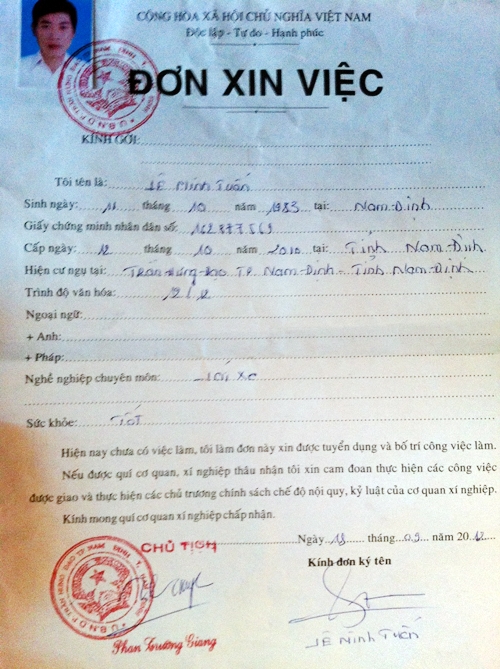 CỘNG HÒA XÃ HỘI CHỦ NGHĨA VIỆT NAM
Độc lập - Tự do - Hạnh phúc
ĐƠN XIN VIỆC
KÍNH GỬI:
Tôi tên là: Lê Minh Tuấn
Sinh ngày: 11 tháng 10 năm 1983 tại: Nam Định
Giấy chứng minh nhân dân số: 162877569
Cấp ngày: 12 tháng 10 năm 2010 tại: Tỉnh Nam Định
Hiện cư ngụ tại: Trần Hưng Đạo TP. Nam Định - Tỉnh Nam Định
Trình độ văn hóa: 12/12
Ngoại ngữ:
+ Anh:
+ Pháp:
Nghề nghiệp chuyên môn: Lái xe
Sức khỏe: Tốt
Hiện nay chưa có việc làm, tôi làm đơn này xin được tuyển dụng và bố trí công việc làm.
Nếu được quí cơ quan, xí nghiệp thâu nhận tôi xin cam đoan thực hiện các công việc
được giao và thực hiện các chủ trương chính sách chế độ nội quy, kỷ luật của cơ quan xí nghiệp.
Kính mong quí cơ quan xí nghiệp chấp nhận.
Ngày 18 tháng 09 năm 2012
CHỦ TỊCH
Kính đơn ký tên
Phan Trường Giang
Lê Minh Tuấn